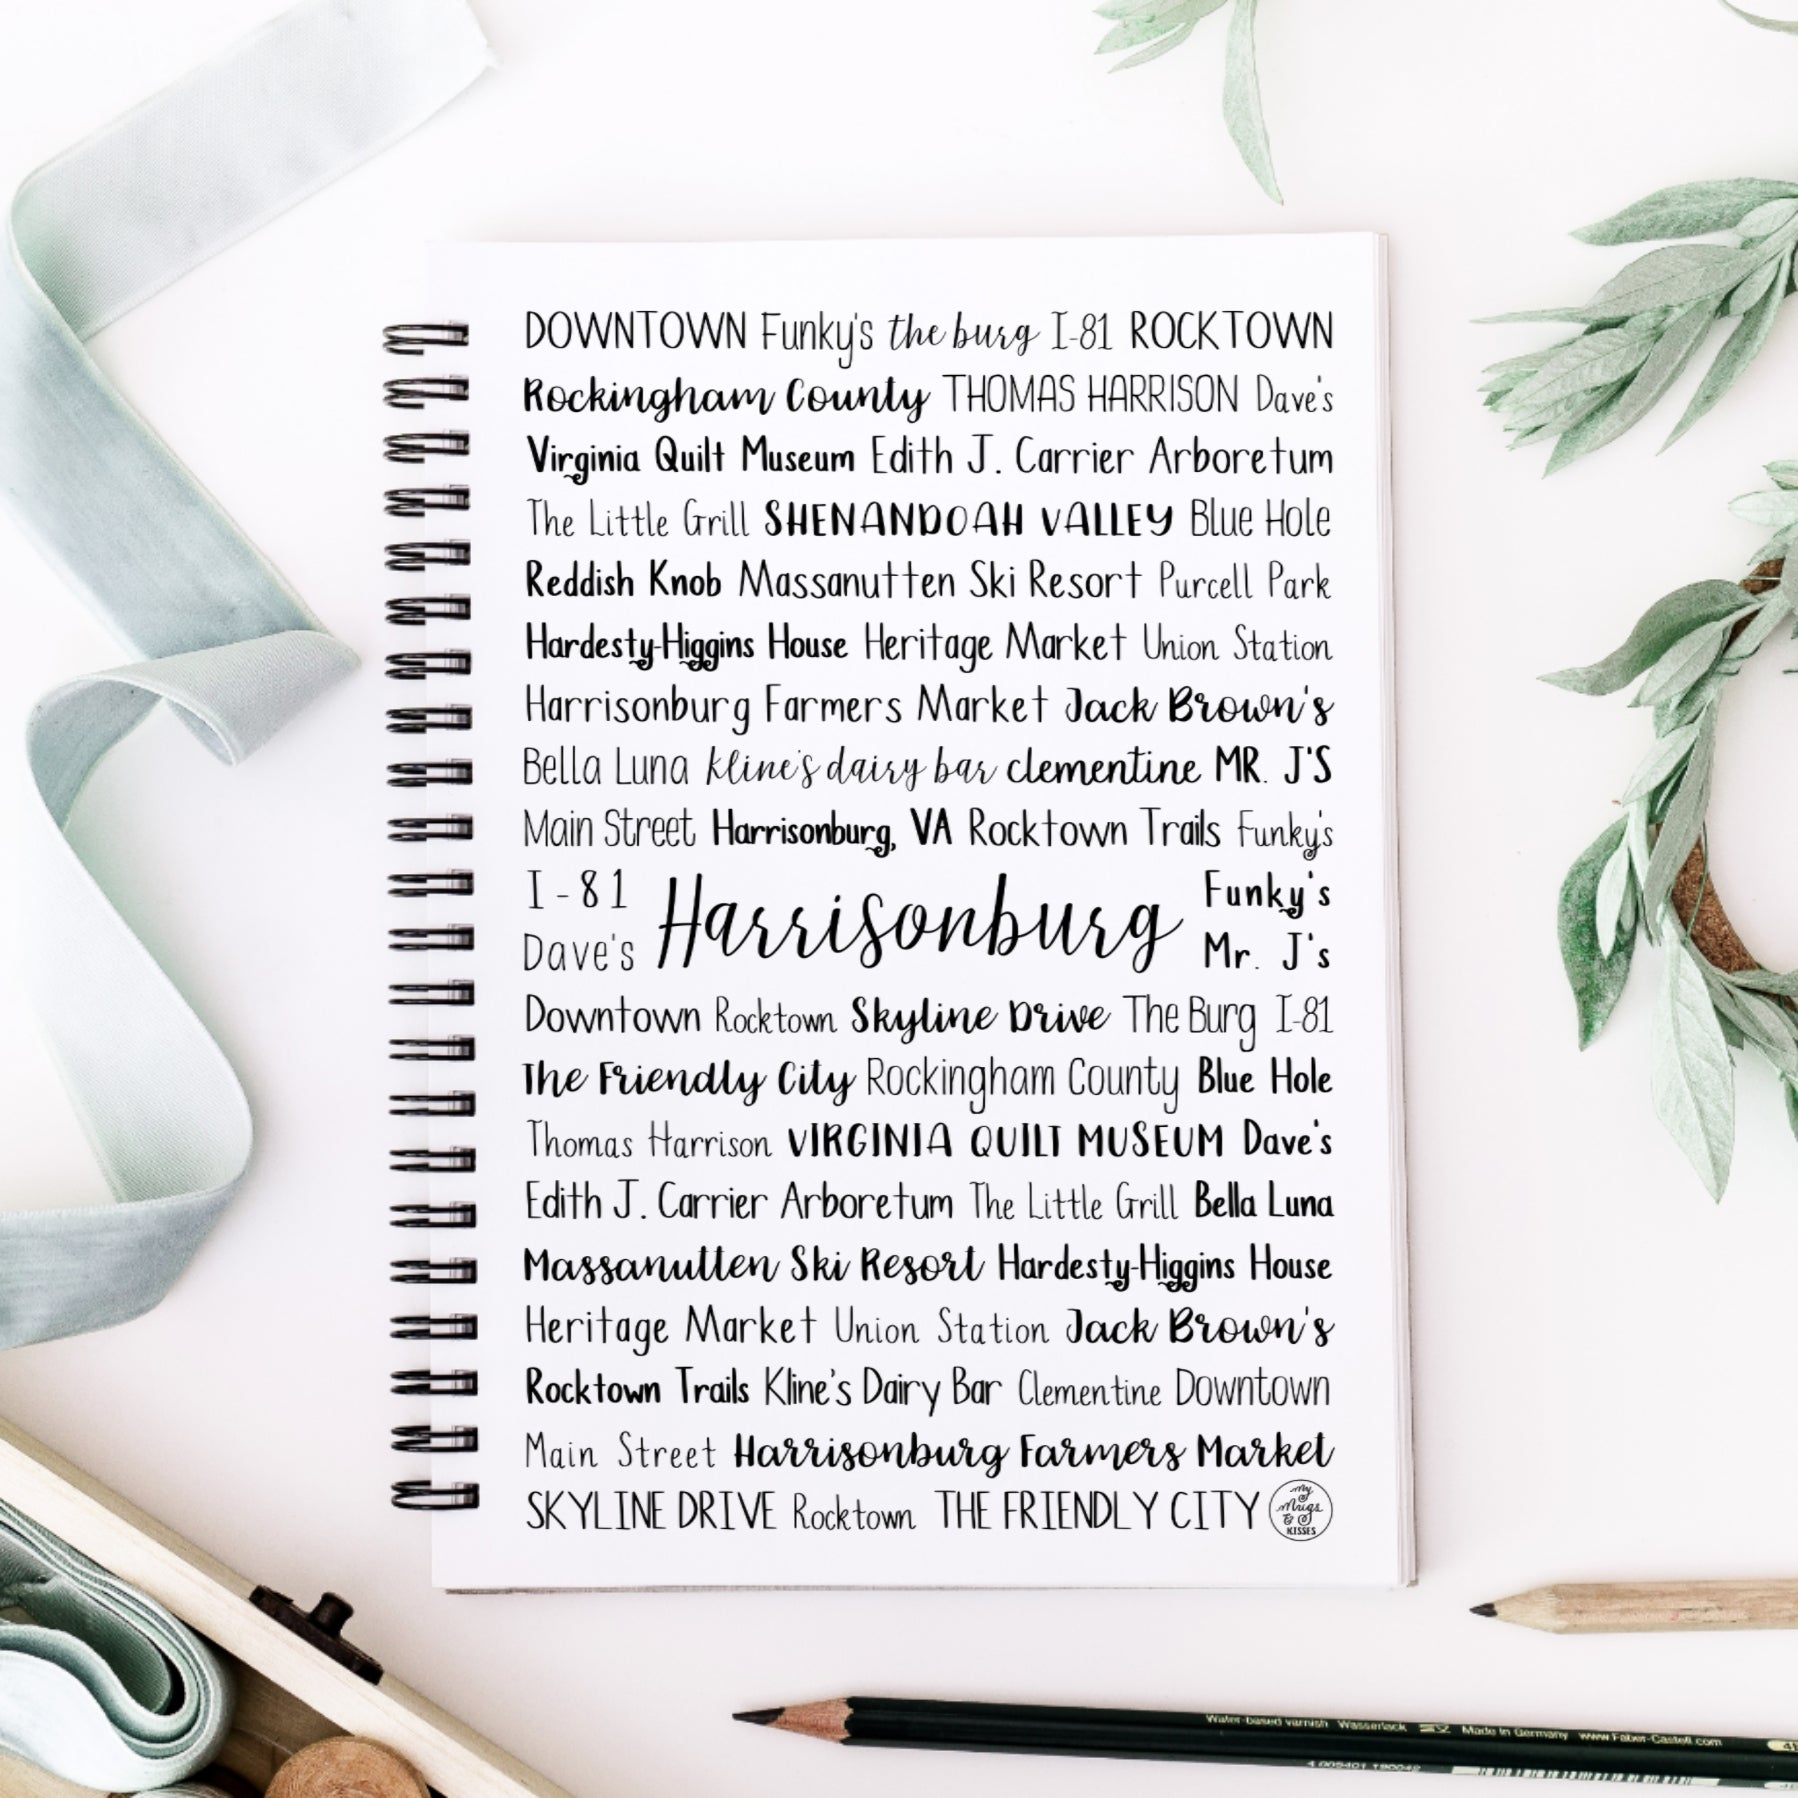 DOWNTOWN Funky's the burg I-81 ROCKTOWN
Rockingham County THOMAS HARRISON Dave's
Virginia Quilt Museum Edith J. Carrier Arboretum
The Little Grill SHENANDOAH VALLEY Blue Hole
Reddish Knob Massanutten Ski Resort Purcell Park
Hardesty-Higgins House Heritage Market Union Station
Harrisonburg Farmers Market Jack Brown's
Bella Luna kline's dairy bar clementine MR. J'S
Main Street Harrisonburg, VA Rocktown Trails Funky's
I-81
Dave's
Harrisonburg
Funky's
Mr. J's
Downtown Rocktown Skyline Drive The Burg I-81
The Friendly City Rockingham County Blue Hole
Thomas Harrison VIRGINIA QUILT MUSEUM Dave's
Edith J. Carrier Arboretum The Little Grill Bella Luna
Massanutten Ski Resort Hardesty-Higgins House
Heritage Market Union Station Jack Brown's
Rocktown Trails Kline's Dairy Bar Clementine Downtown
Main Street Harrisonburg Farmers Market
SKYLINE DRIVE Rocktown THE FRIENDLY CITY
My
Mugs
&
KISSES
Water-based varnish Wasserlack Made in Germany www.Faber-Castell.com
4 005401 190042